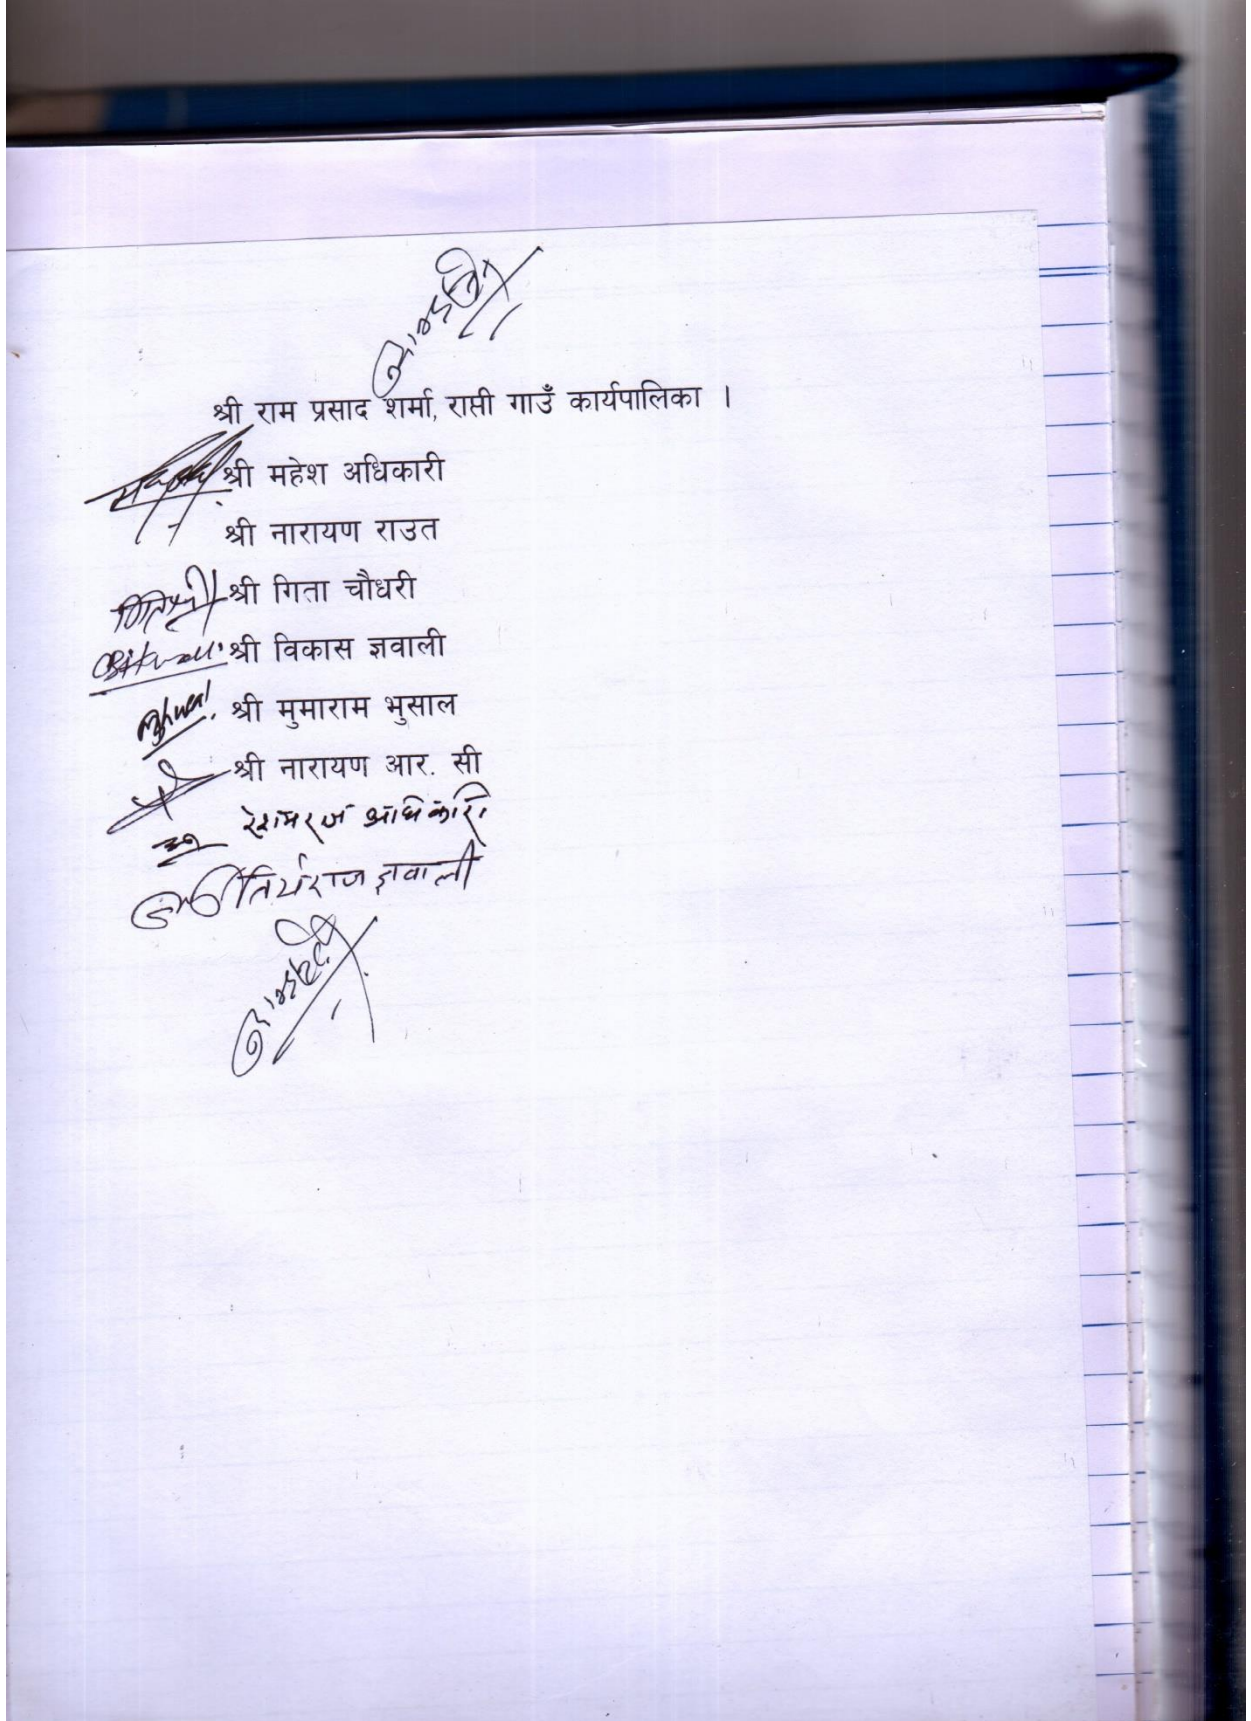 श्री राम प्रसाद शर्मा, राप्ती गाउँ कार्यपालिका ।
श्री महेश अधिकारी
श्री नारायण राउत
श्री गिता चौधरी
श्री विकास ज्ञवाली
श्री मुमाराम भुसाल
श्री नारायण आर. सी
रेशमराज अधिकारी
तिर्थराज ज्ञवाली